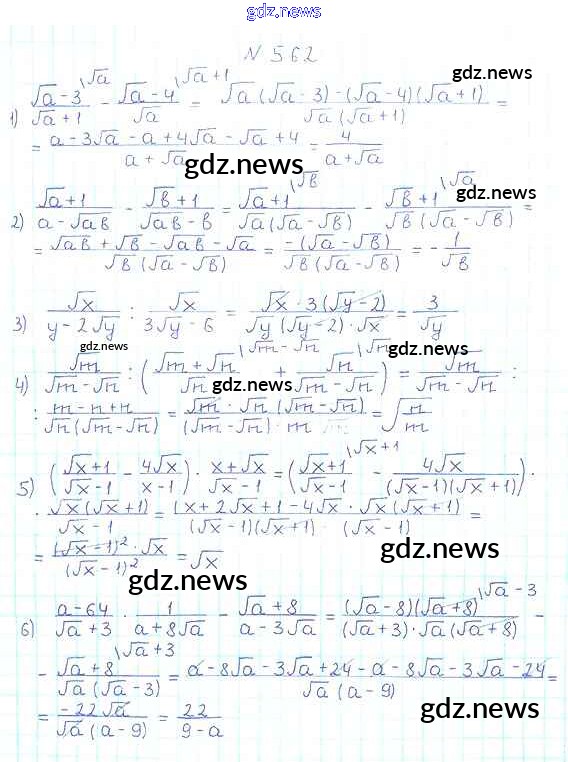 gdz.news
N 562
gdz.news
1) (√a-3)/(√a+1) \√a - (√a-4)/√a \√a+1 = (√a(√a-3)-(√a-4)(√a+1))/(√a(√a+1)) =
= (a-3√a-a+4√a-√a+4)/(a+√a) = 4/(a+√a)
gdz.news
2) (√a+1)/(a-√aв) - (√в+1)/(√aв-в) = (√a+1)/(√a(√a-√в)) \√в - (√в+1)/(√в(√a-√в)) \√a =
gdz.news
= (√aв+√в-√aв-√a)/(√в(√a-√в)) = (-(√a-√в))/(√в(√a-√в)) = -1/√в
3) √x/(y-2√y) : √x/(3√y-6) = (√x·3(√y-2))/(√y(√y-2)·√x) = 3/√y
gdz.news
gdz.news
4) √m/(√m-√n) : ((√m+√n)/√n \√m-√n + √n/(√m-√n) \√n) = √m/(√m-√n) :
gdz.news
: (m-n+n)/(√n(√m-√n)) = (√m·√n(√m-√n))/((√m-√n)·m) = √(n/m)
5) ((√x+1)/(√x-1) - 4√x/(x-1)) · (x+√x)/(√x-1) = ((√x+1)/(√x-1) \√x+1 - 4√x/((√x-1)(√x+1))) ·
· √x(√x+1)/(√x-1) = ((x+2√x+1-4√x)·√x(√x+1))/((√x-1)(√x+1)·(√x-1)) =
gdz.news
= ((√x-1)²·√x)/(√x-1)² = √x
gdz.news
6) (a-64)/(√a+3) · 1/(a+8√a) - (√a+8)/(a-3√a) = ((√a-8)(√a+8))/((√a+3)·√a(√a+8)) \√a-3 -
- (√a+8)/(√a(√a-3)) \√a+3 = (a-8√a-3√a+24-a-8√a-3√a-24)/(√a(a-9)) =
= (-22√a)/(√a(a-9)) = 22/(9-a)
gdz.news